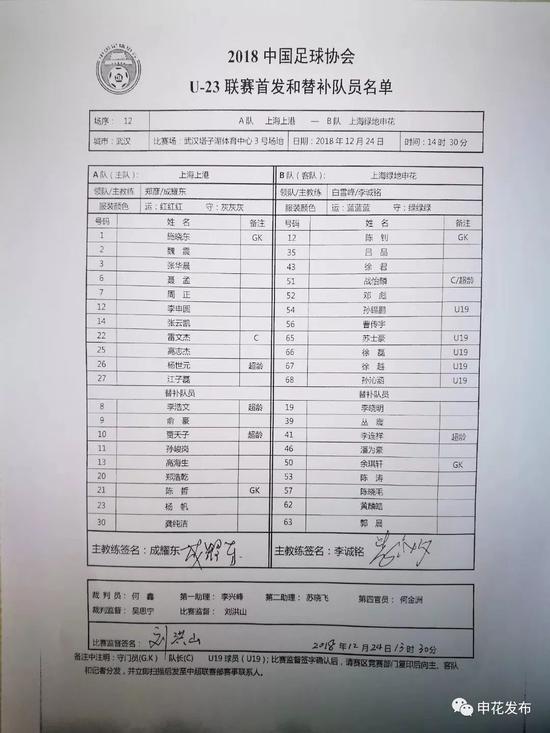 2018 中国足球协会
U-23 联赛首发和替补队员名单
场序: 12 A 队 上海上港 — B 队 上海绿地申花
城市: 武汉 比赛场: 武汉塔子湖体育中心 3 号场地 日期: 2018 年 12 月 24 日 时间: 14 时 30 分
A 队(主队): 上海上港 B 队(客队): 上海绿地申花
领队/主教练 郑彦/成耀东 领队/主教练 白雪峰/李诚铭
服装颜色 运: 红红红 守: 灰灰灰 服装颜色 运: 蓝蓝蓝 守: 绿绿绿
号码 姓 名 备注 号码 姓 名 备注
1 施晓东 GK 12 陈 钊 GK
2 魏 震 35 吕 品
3 张华晨 43 徐 君
6 聂 孟 51 战怡麟 C/超龄
7 周 正 52 邓 彪
12 李申圆 54 孙锡鹏 U19
14 张云凯 56 曹传宇
22 雷文杰 C 65 苏士豪 U19
25 高志杰 66 徐 磊 U19
26 杨世元 超龄 67 徐 越 U19
27 江子磊 68 孙沁涵 U19
替补队员 替补队员
8 李浩文 超龄 19 李晓明
9 俞 豪 39 丛 震
10 贾天子 超龄 41 李连祥 超龄
11 孙峻岗 46 潘为豪
13 高海生 50 余琪轩 GK
20 郑浩乾 53 陈 涛
21 陈 哲 GK 57 陈晓毛
23 杨 帆 62 黄麟皓
30 龚纯洁 63 郭 晨
主教练签名: 成耀东 成耀东 主教练签名: 李诚铭
裁 判 员: 何 鑫 第一助理: 李兴峰 第二助理: 苏晓飞 第四官员: 何金洲
裁判监督: 吴思宁 比赛监督: 刘洪山
比赛监督签名: 刘洪山 2018年12月24日13时30分
备注中注明: 守门员(G.K) 队长(C) U19 球员(U19); 比赛监督签字确认后, 请赛区竞赛部门复印后向主、客队
和记者分发, 并立即扫描后发至中超联赛部赛事联系人。
申花发布